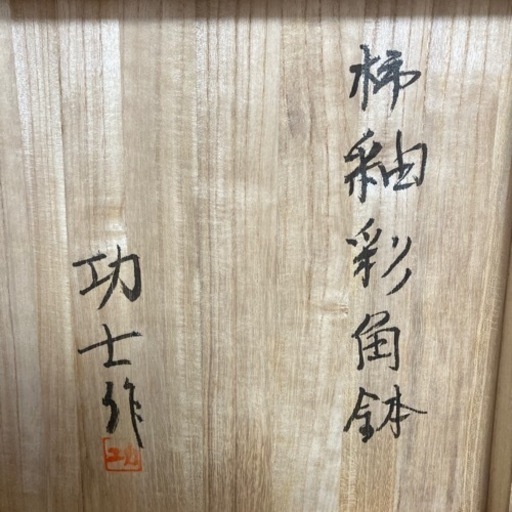 柿釉彩角鉢
功士作
功